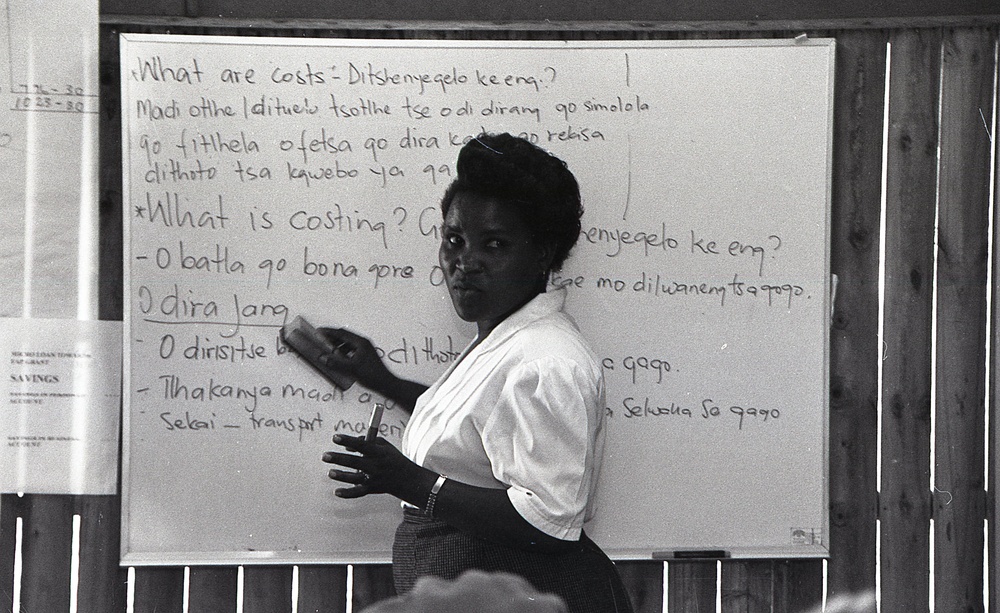 776-30
1023-80
MICRO LOAN
SAVINGS
ACCOUNT
ACCOUNT
*What are costs - Ditshenyegelo ke eng?
Madi otlhe /dituelo tsotlhe tse o di dirang go simolola
go fitlhela o fetsa go dira go rekisa
dithoto tsa kgwebo ya
*What is costing? enyegelo ke eng?
- O batla go bona gore mo dilwaneng tsa gogo.
O dira Jang
- O dirisitse dithoto gago.
- Tlhakanya madi a Selwana Sa gago
- Sekai - transport